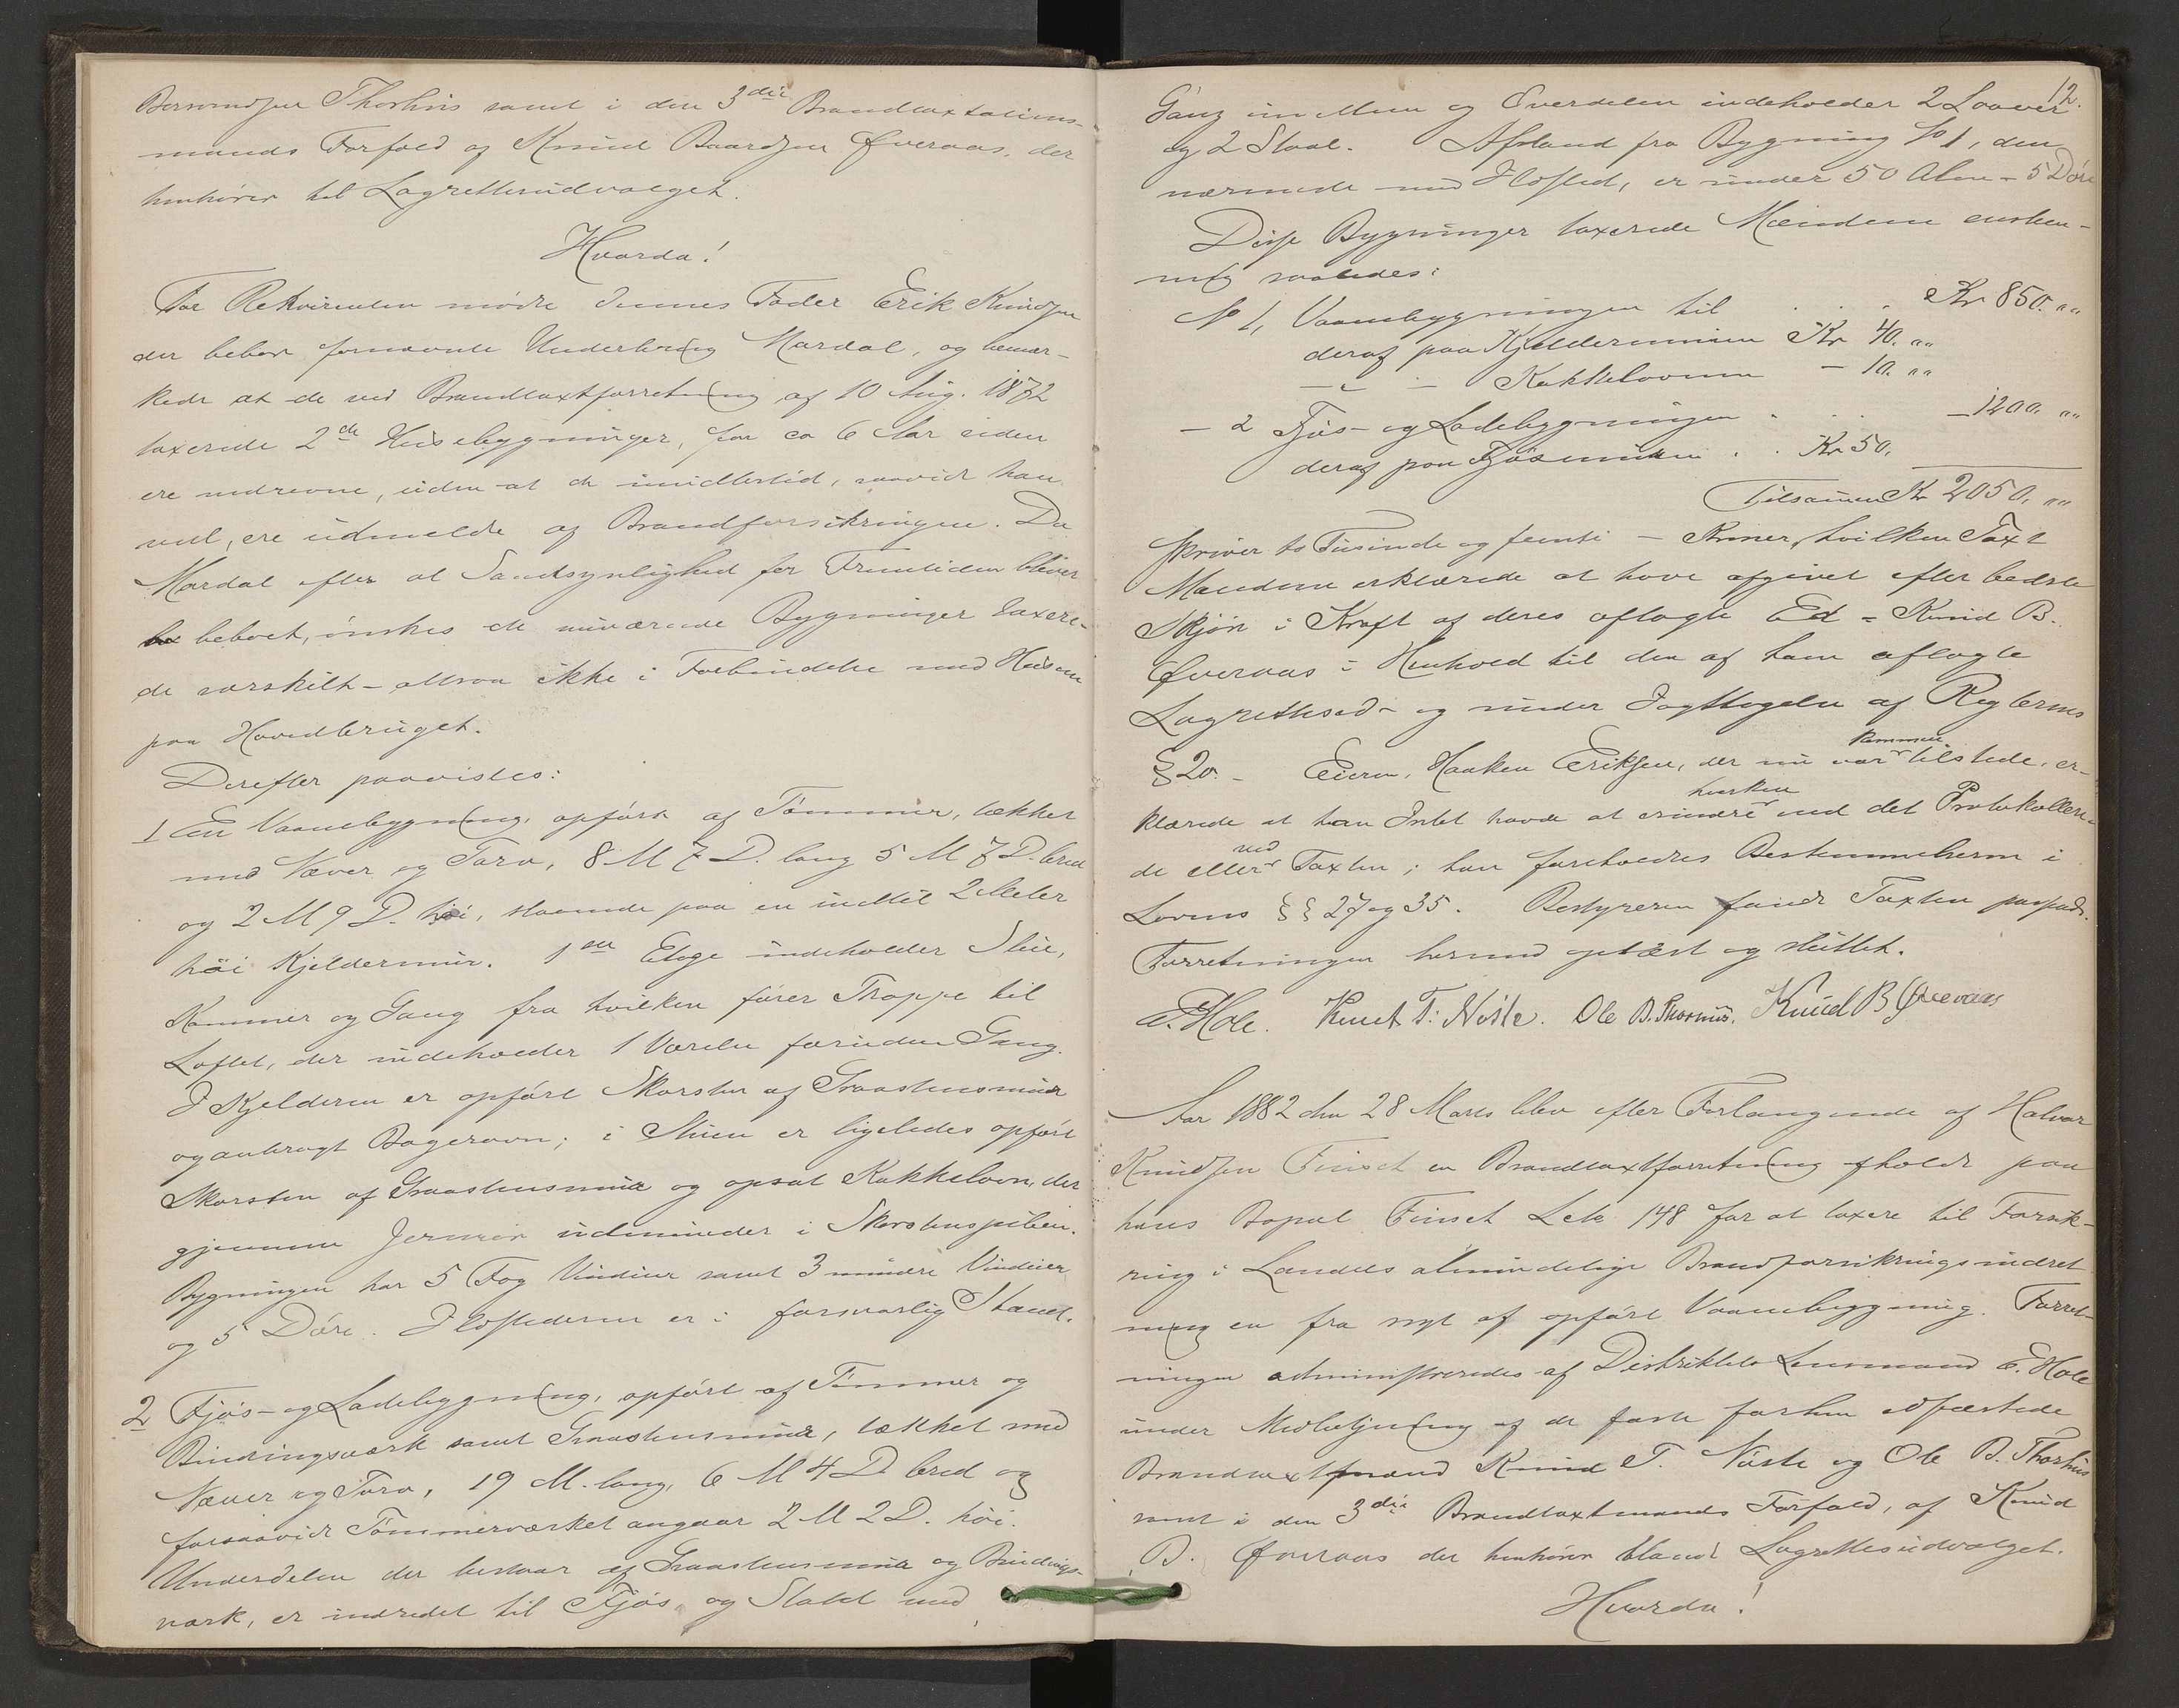 Berromdsen Thorhus samt i den 3die Brandtaxtations-
mands Forfald af Knud Baardsen Øveraas, der
henhører til Lagrettesudvalget.
Hvorda!
For Rekvirenten mødte dennes Fader Erik Knudsen
der bebor fornævnte Underbrug Mardal, og bemær-
kede at de ved Brandtaxtforretning af 10 Aug. 1872
taxerede 2de Husebygninger, for ca 6 Aar siden
ere nedrevne, uden at de imidlertid, saavidt han
ved, ere udmeldte af Brandforsikringen. Da
Mardal efter al Sandsynlighed for Fremtiden bliver
beboet, ønskes de nuværende Bygninger taxere-
de særskilt – altsaa ikke i Forbindelse med Husene
paa Hovedbruget.
Derefter paavistes:
1 En Vaanebygning, opført af Tømmer, tækket
med Næver og Torv, 8 M 7 D. lang 5 M 7 D. bred
og 2 M 9 D. høi, staaende paa en indtil 2 Meter
høi Kjeldermur. 1ste Etage indeholder Stue,
Kammer og Gang fra hvilken fører Trappe til
Loftet, der indeholder 1 Værelse foruden Gang.
I Kjelderen er opført Skorsten af Graastensmur
og anbragt Bagerovn; i Stuen er ligeledes opført
Skorsten af Graastensmur og opsat Kakkelovn, der
gjennem Jernrør udmunder i Skorstenspiben.
Bygningen har 5 Fag Vinduer samt 3 mindre Vinduer
og 5 Døre. Ildstederne er i forsvarlig Stand.
2 Fjøs- og Ladebygning, opført af Tømmer og
Bindingsværk samt Graastensmur, tækket med
Næver og Torv, 19 M. lang, 6 M 4 D bred og
forsaavidt Tømmerværket angaar 2 M 2 D. høi.
Underdelen der bestaar af Graastensmur og Bindings-
værk, er indredet til Fjøs og Stald med
12.
Gang imellem og Overdelen indeholder 2 Laaver
og 2 Staal. Afstand fra Bygning No 1, den
nærmeste med Ildsted, er under 50 Alen – 5 Døre
Disse Bygninger taxerede Mændene enstem-
mig saaledes:
No 1, Vaanebygningen til . . . Kr 850. „„
deraf paa Kjeldermuren Kr 40. „„
— „ — Kakkelovnen – 10. „„
– 2 Fjøs- og Ladebygningen . . . – 1200. „„
deraf paa Fjøsmuren . . Kr 50.
Tilsammen Kr 2050. „„
skriver to Tusinde og femti – Kroner, hvilken Taxt
Mændene erklærede at have afgivet efter bedste
Skjøn i Kraft af deres aflagte Ed – Knud B.
Øveraas i Henhold til den af ham aflagte
Lagrettesed – og under Iagttagelse af Reglernes
§ 20. – Eieren, Haaken Eriksen, der nu var kommen tilstede, er-
klærede at han Intet havde at erindre hverken ved det Protokolleré-
de eller ved Taxten; han foreholdtes Bestemmelserne i
Lovens §§ 27 og 35. Bestyreren fandt Taxten passende.
Forretningen hermed oplæst og sluttet.
E. Hole. Knut T: Nøste. Ole B. Thorhus. Knud B Øveraas
Aar 1882 den 28 Marts blev efter Forlangende af Halvor
Knudsen Finset en Brandtaxtforretning afholdt paa
hans Bopæl Finset Lek 148 for at taxere til Forsik-
ring i Landets almindelige Brandforsikringsindret
ning en fra nyt af opført Vaanebygning. Forret-
ningen administreredes af Distriktets Lensmand E. Hole
under Medbetjening af de faste forhen edfæstede
Brandtaxtmænd Knud T. Nøste og Ole B. Thorhus
samt i den 3die Brandtaxtmands Forfald, af Knud
B. Øveraas der henhører blandt Lagrettesudvalget.
Hvorda!